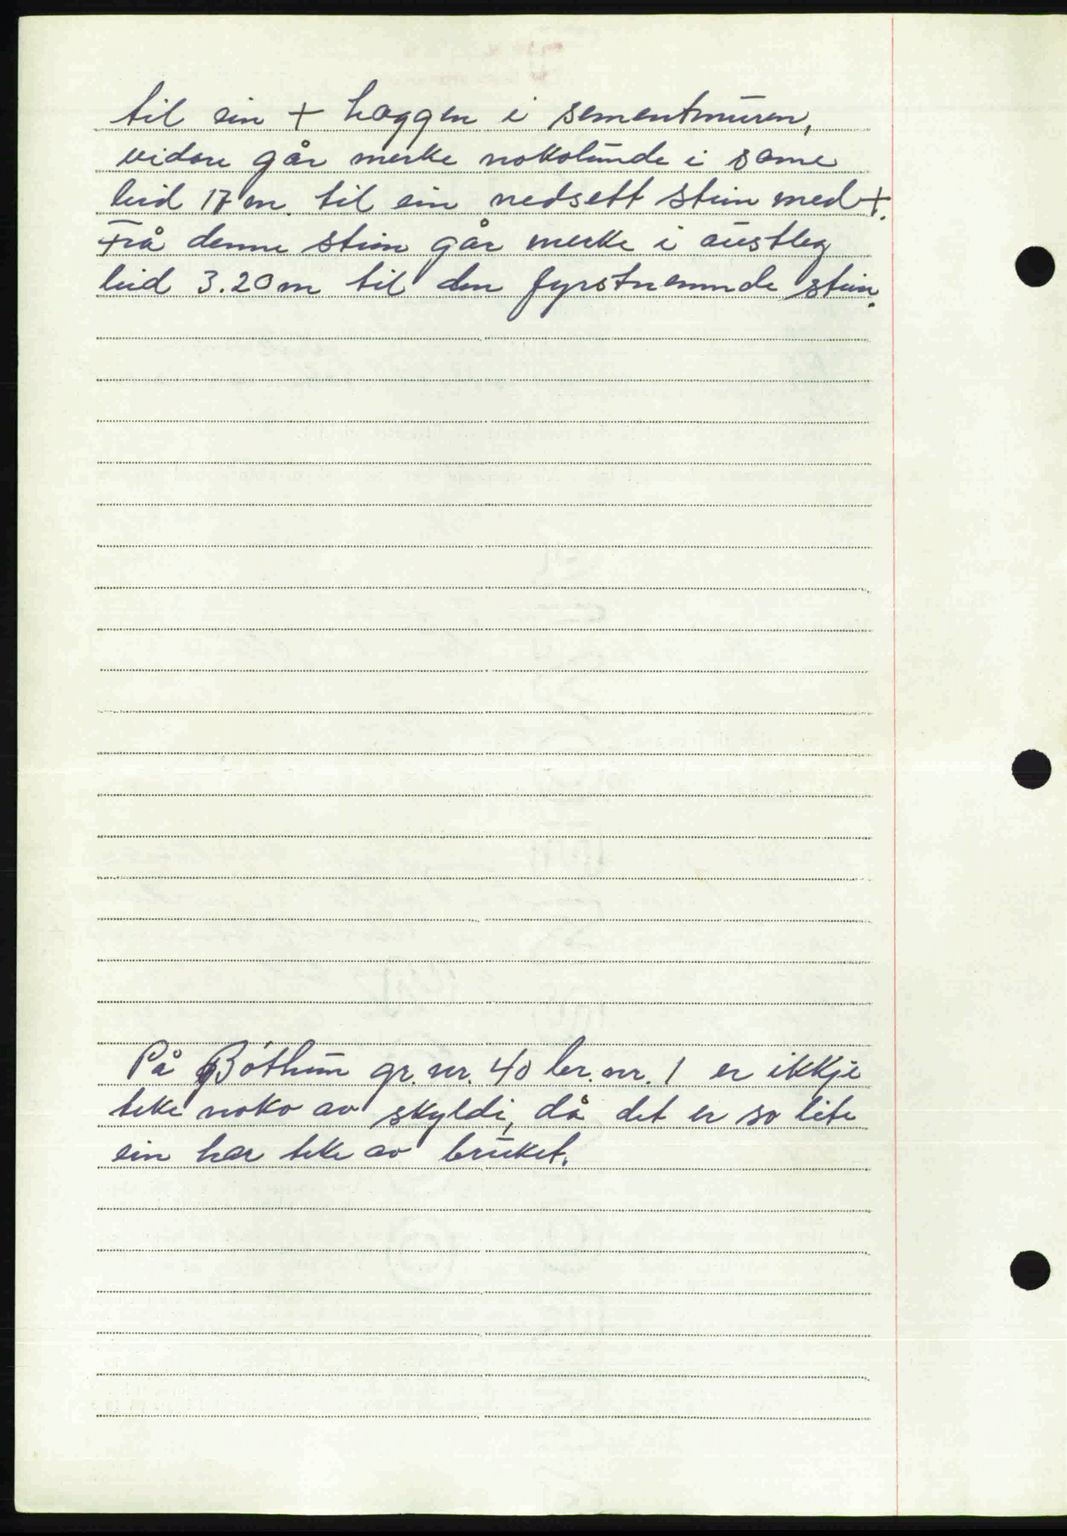 til ein + hoggen i sementmuren,
vidare går merke nokolunde i same
leid 17 m. til ein nedsett stein med +.
Frå denne stein går merke i austleg
leid 3.20 m til den fyrstnemnde stein.
På Bóthun gr. nr. 40 br. nr. 1 er ikkje
teke noko av skyldi, då det er so lite
ein har teke av bruket.